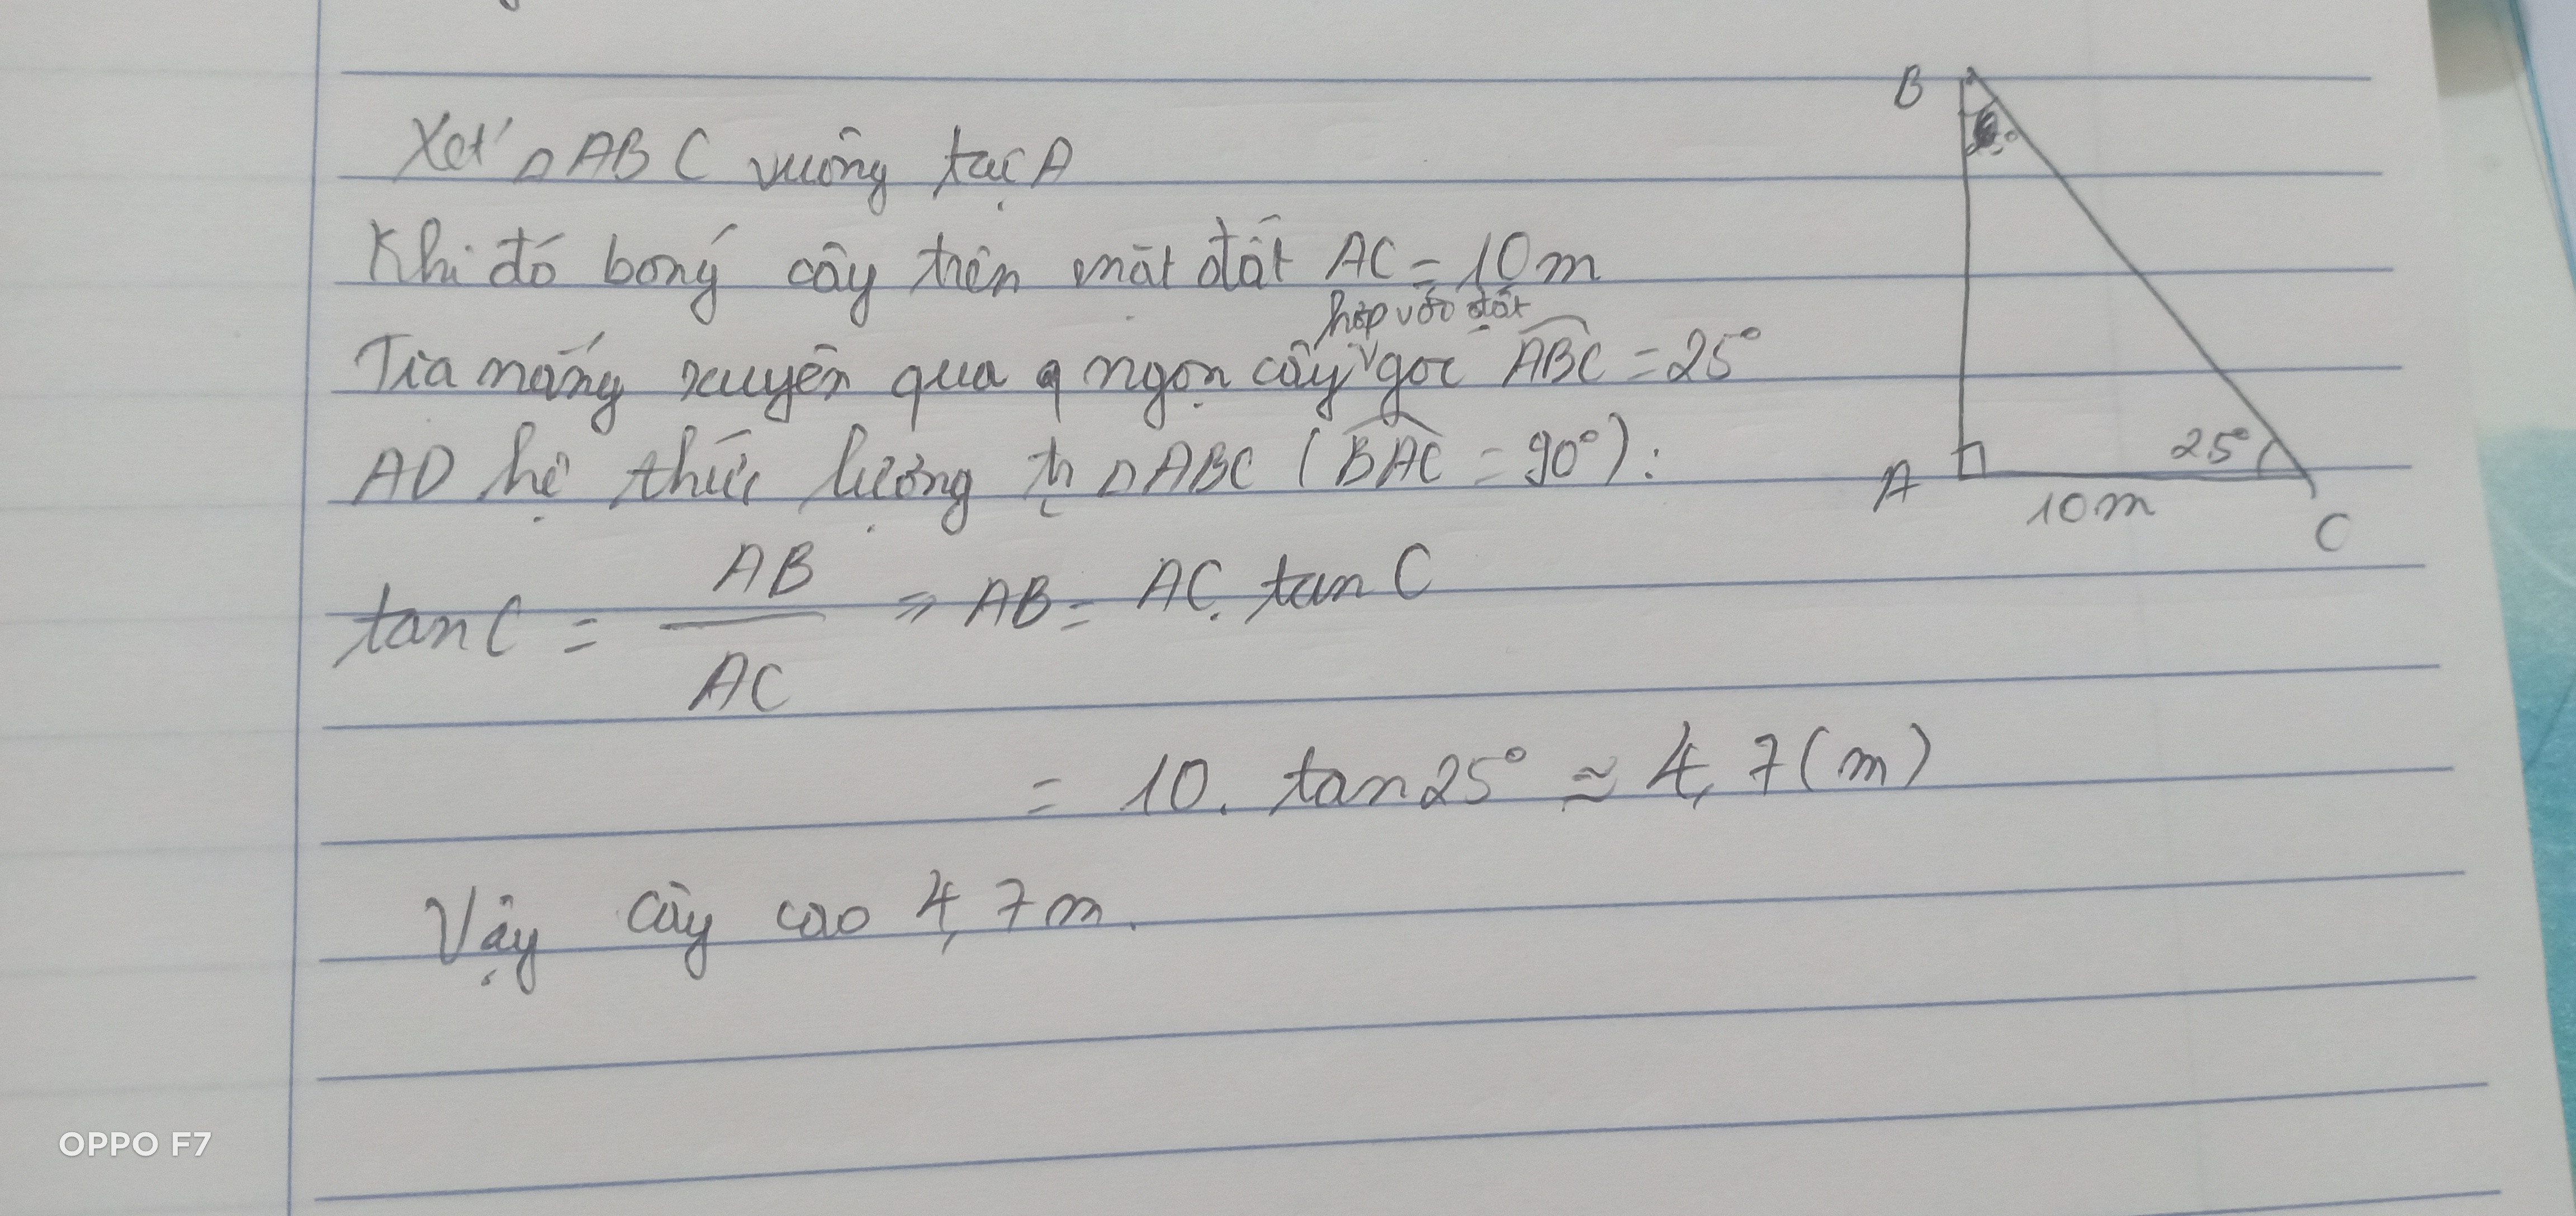 B
Xét △ABC vuông tại A
Khi đó bóng cây trên mặt đất AC = 10m
hợp với đất
Tia nắng xuyên qua q ngọn cây góc ABC = 25°
AD hệ thức lượng tr △ABC (BAC = 90°):
25°
A
10m
C
tanC = AB / AC ⇒ AB = AC. tanC
= 10. tan25° ≈ 4,7(m)
Vậy cây cao 4,7m.
OPPO F7